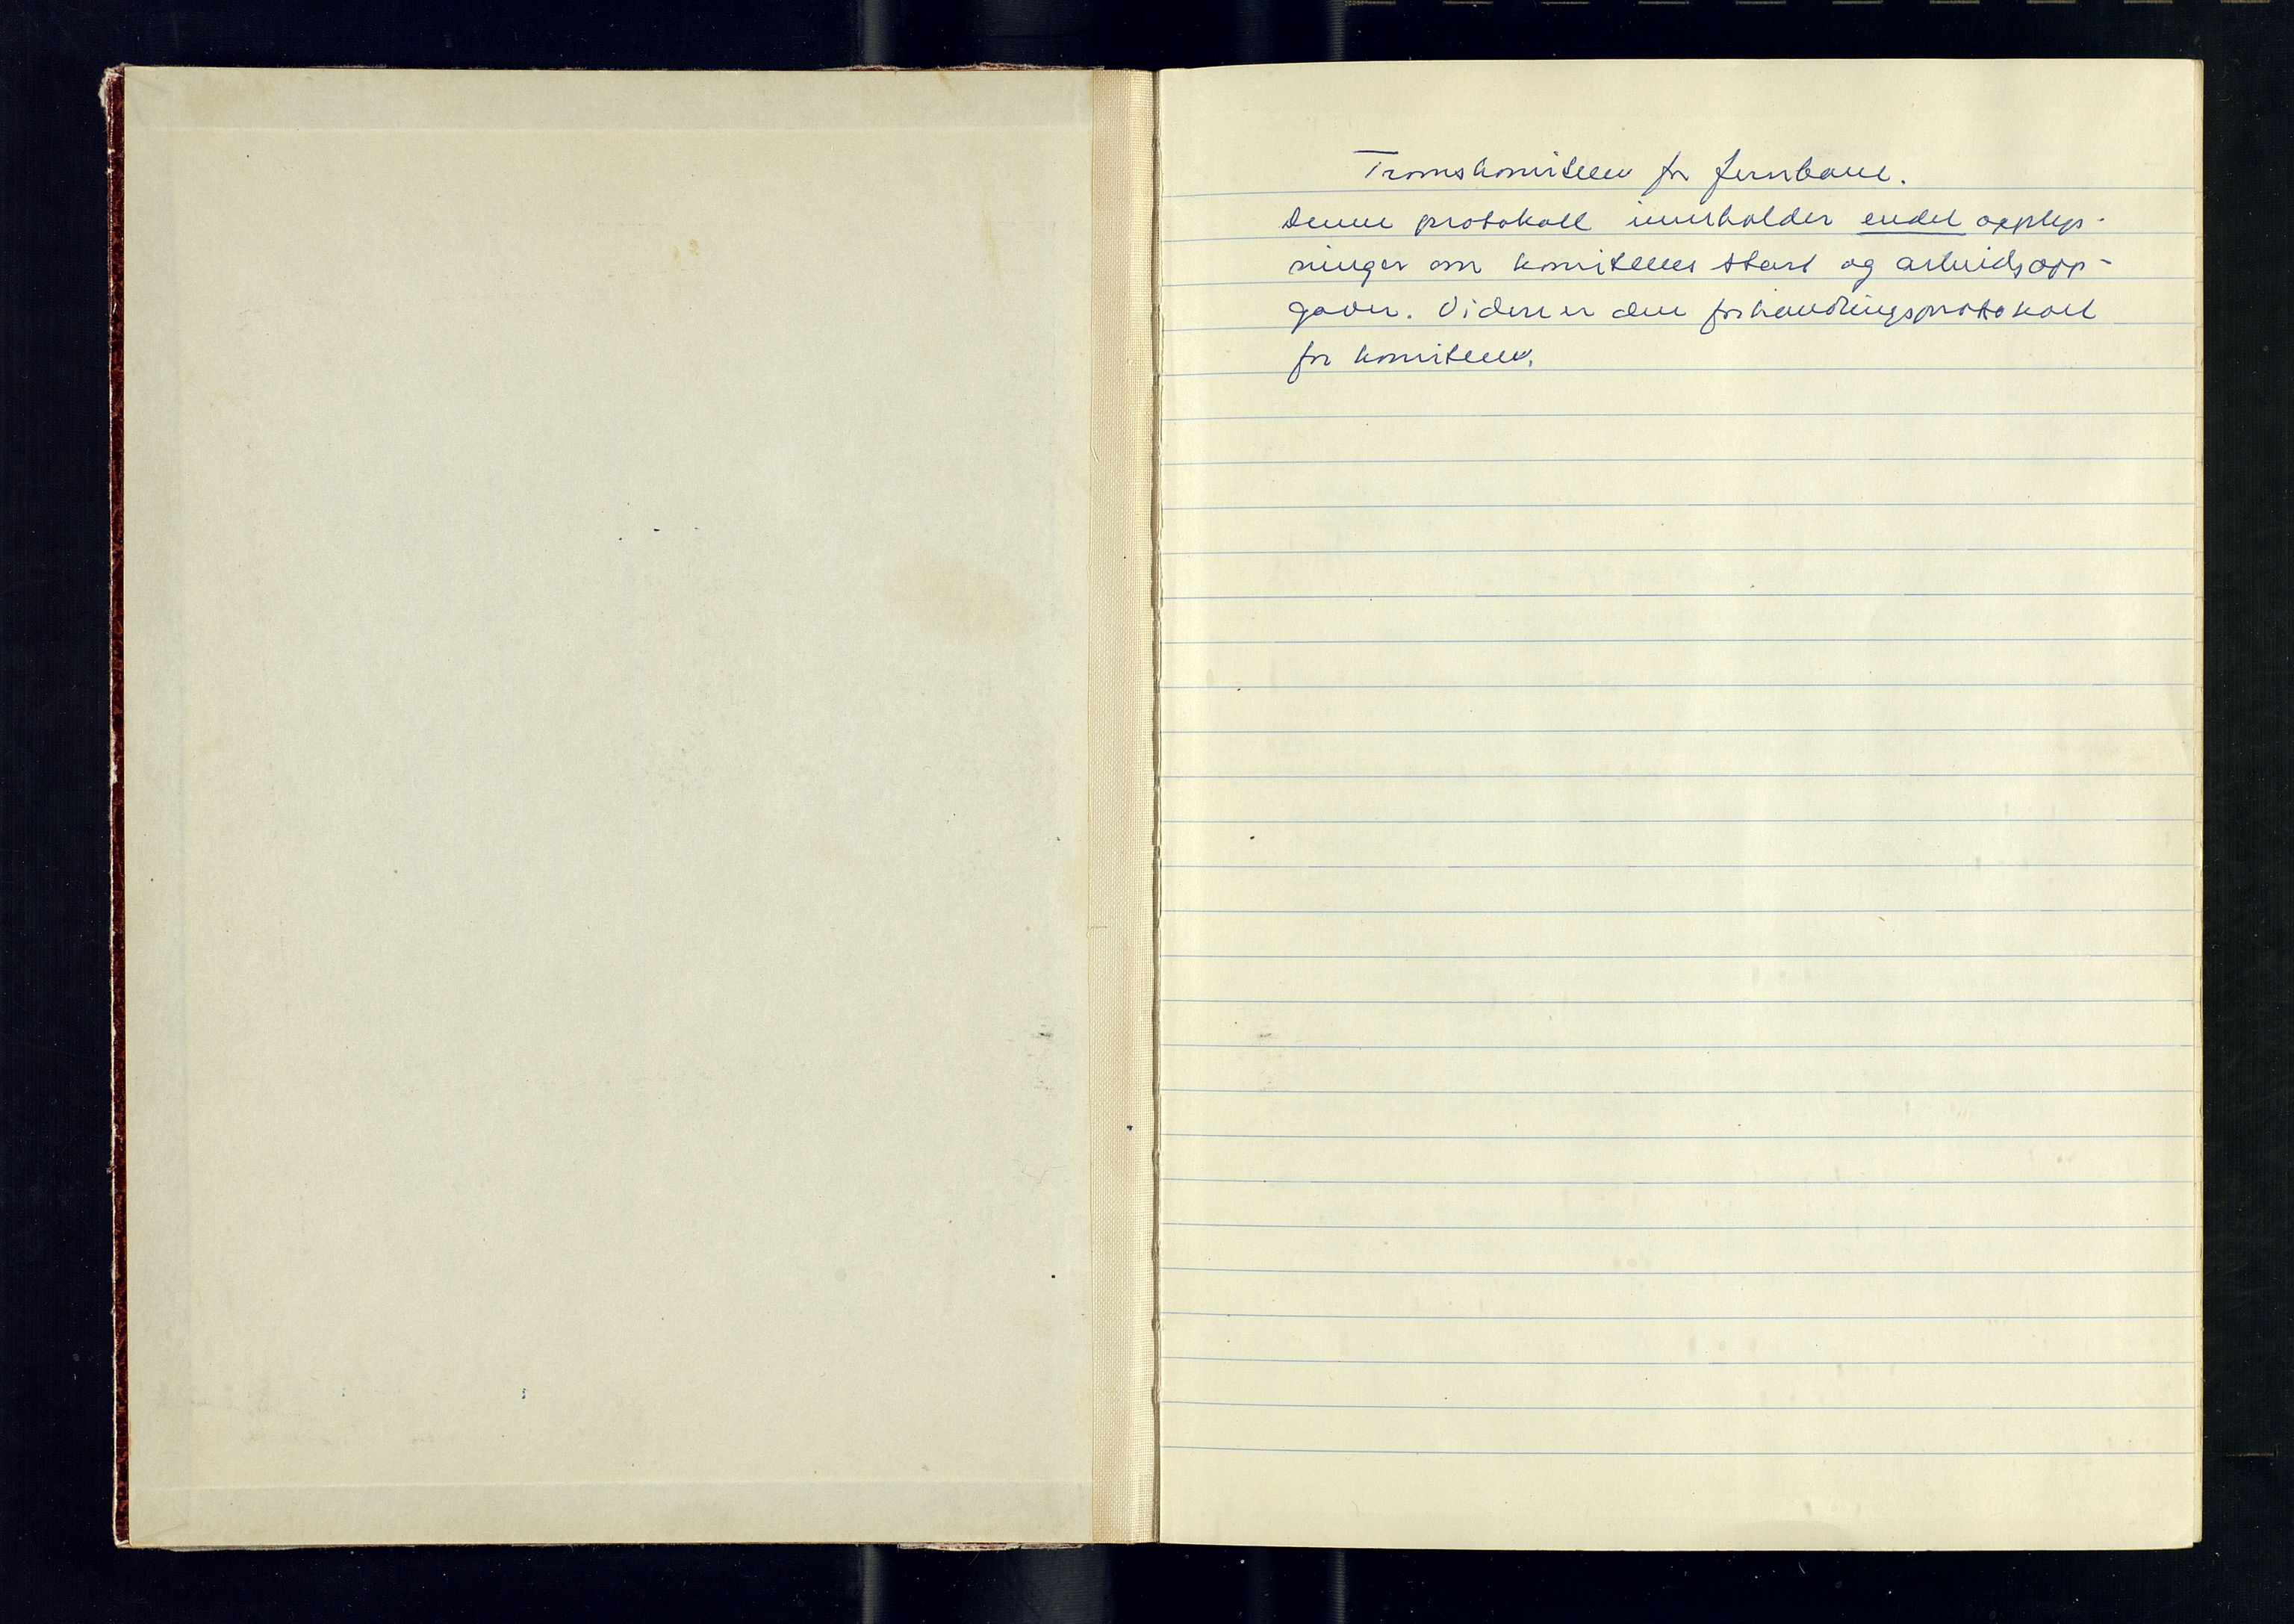 Tromskomiteen for Jernbane.
Denne protokoll innerholder endel opplys-
ninger om komiteens start og arbeidsopp-
gaver. Videre er den forhandlingsprotokoll
for komiteen.